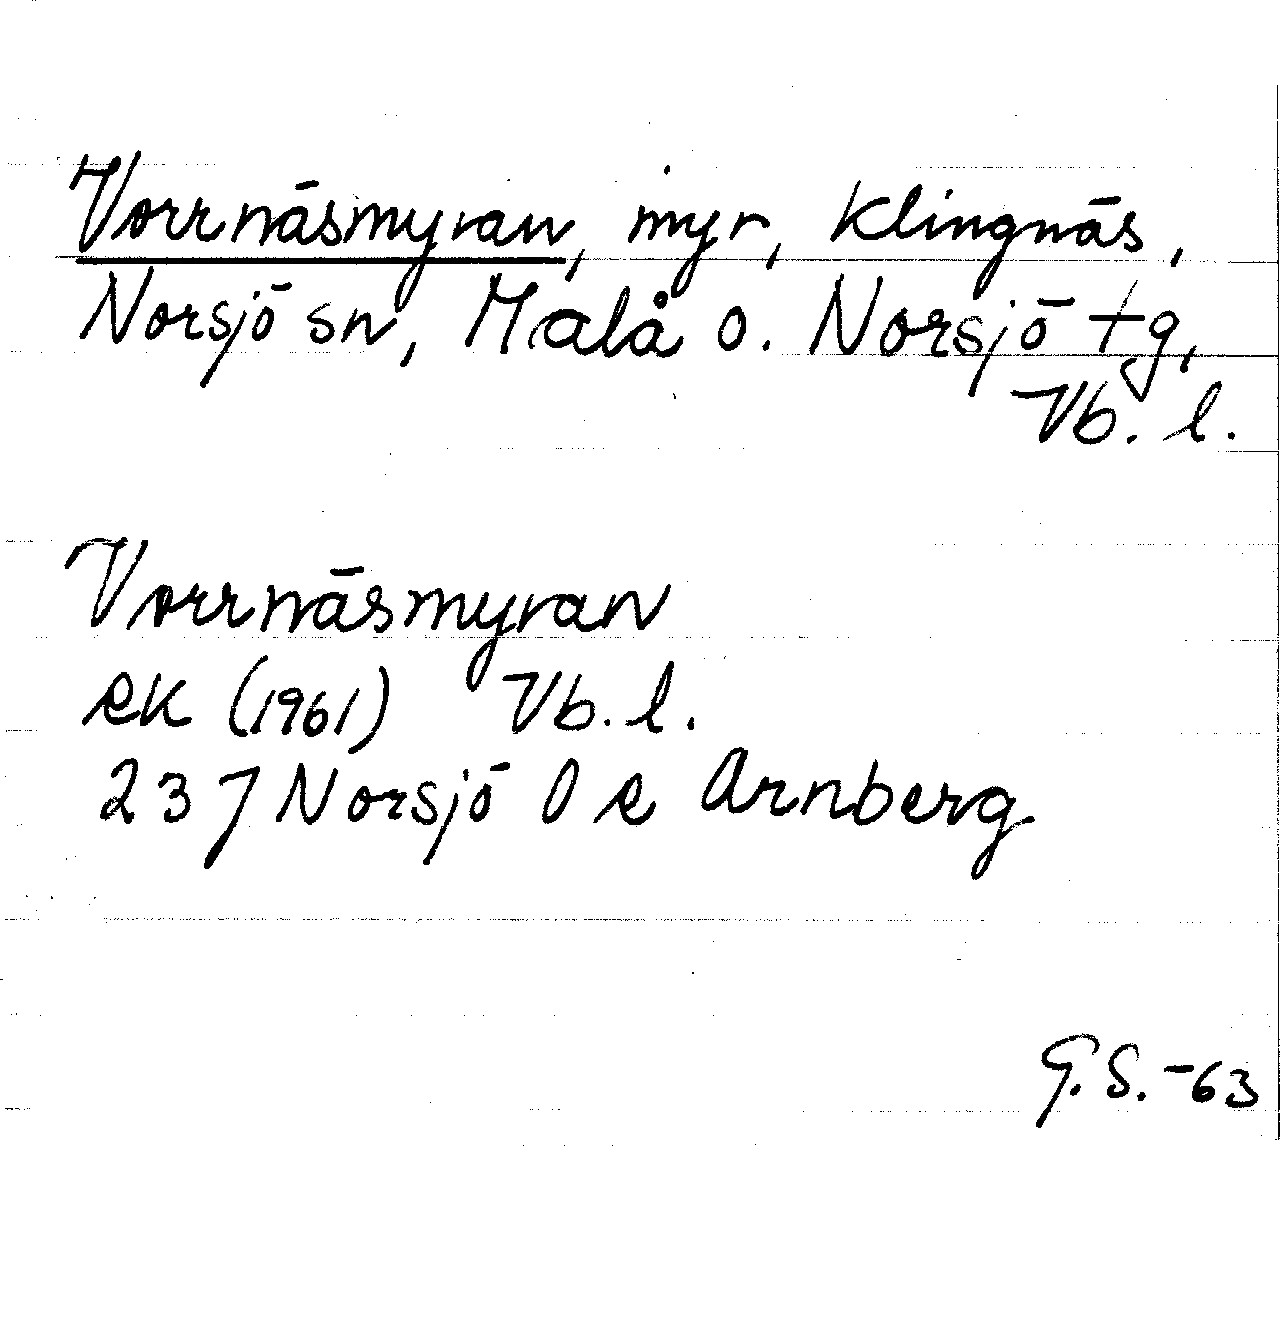 Vorrnäsmyran, myr, Klingnäs,
Norsjö sn, Malå o. Norsjö tg,
Vb. l.
Vorrnäsmyran
ek (1961) Vb. l.
23 J Norsjö 0 e Arnberg
G.S. -63